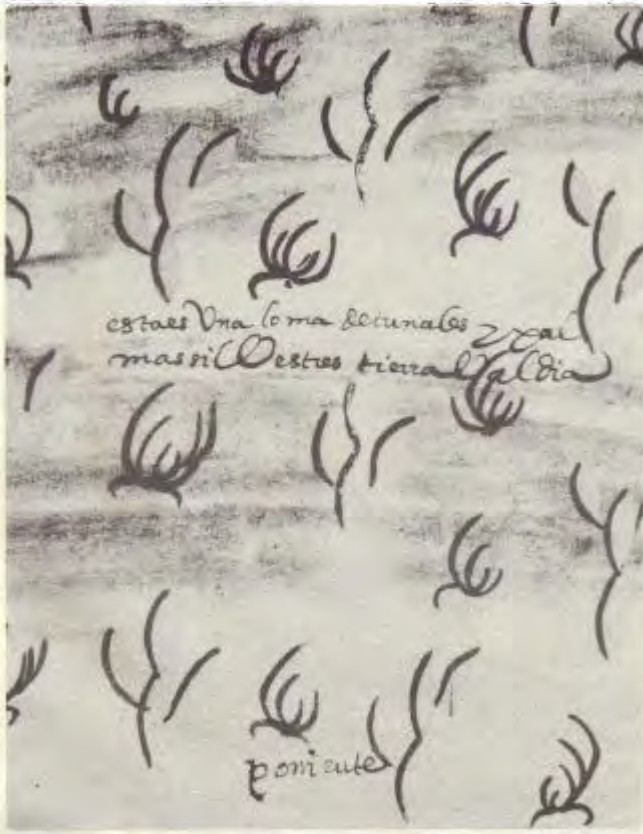 estaes Una loma detunales y xaral
massil Oestres tierra Valdia
poniente